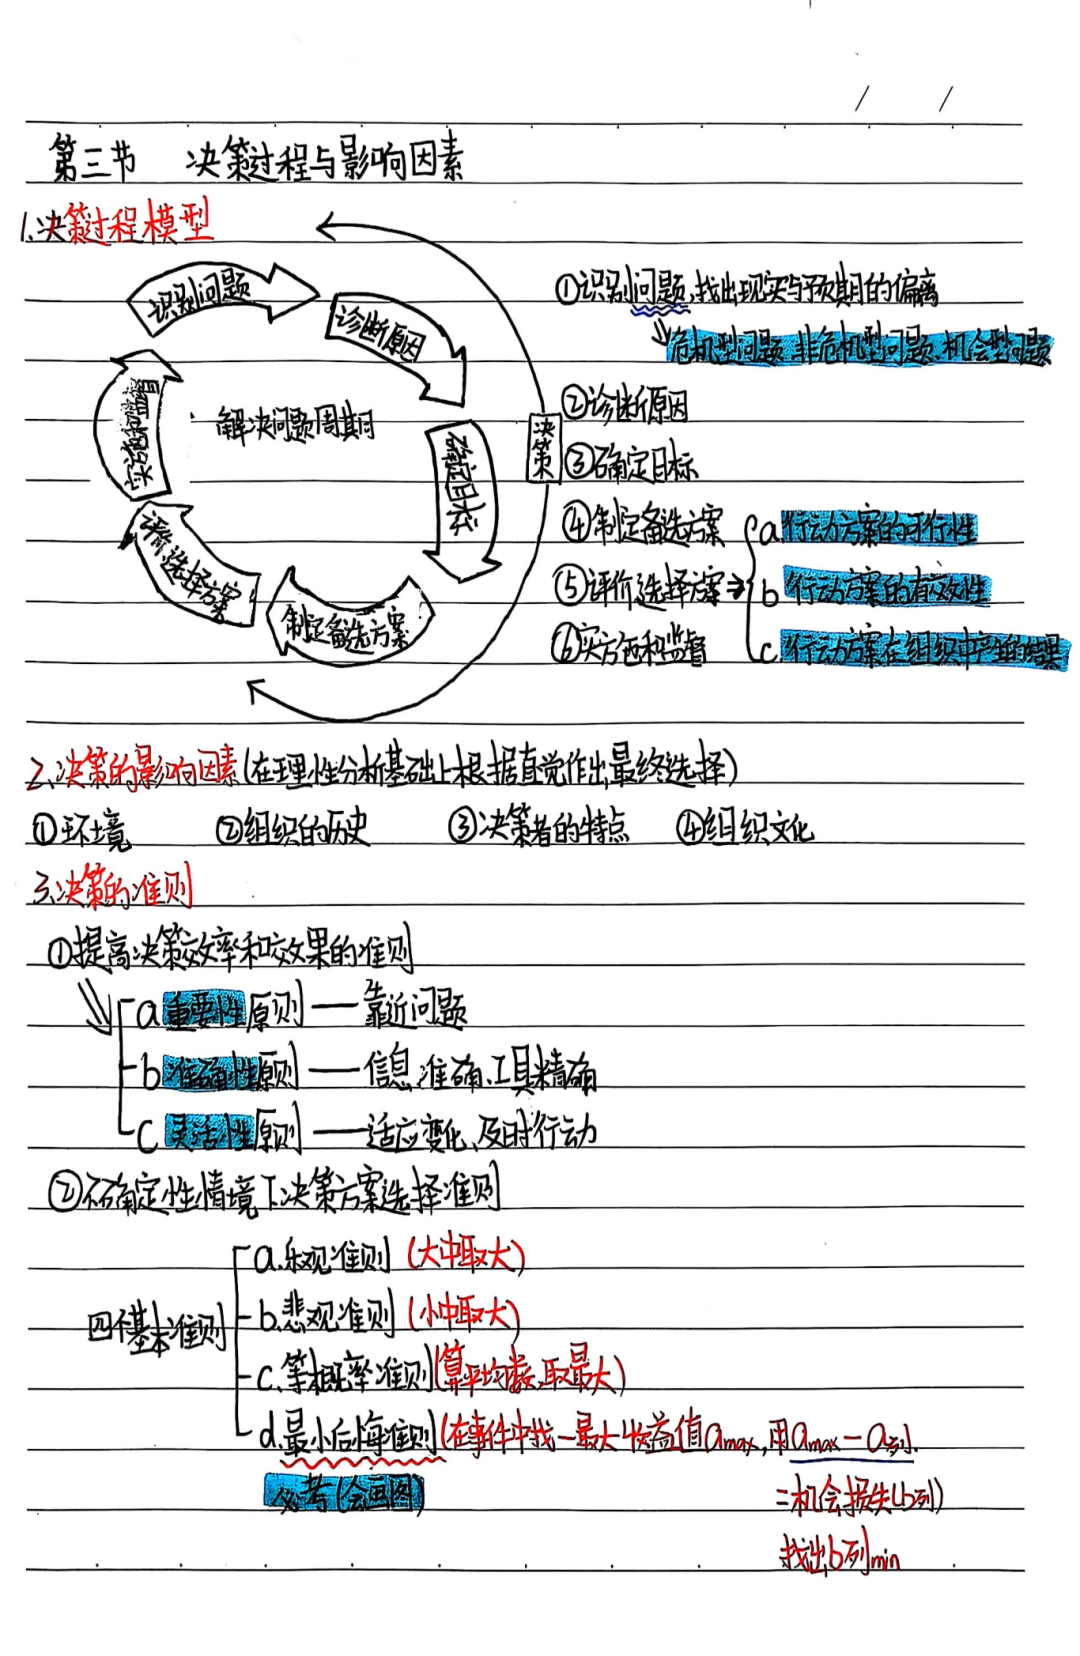 第三节 决策过程与影响因素
1.决策过程模型
识别问题
诊断原因
确定目标
制定备选方案
评价、选择方案
实施和监督
解决问题周期
决策
①识别问题,找出现实与预期的偏离
危机型问题、非危机型问题、机会型问题
②诊断原因
③确定目标
④制定备选方案
⑤评价、选择方案
a.行动方案的可行性
b 行动方案的有效性
c.行动方案在组织中产生的结果
⑥实施和监督
2.决策的影响因素(在理性分析基础上根据直觉作出最终选择)
①环境 ②组织的历史 ③决策者的特点 ④组织文化
3.决策的准则
①提高决策效率和效果的准则
a 重要性原则——靠近问题
b 准确性原则——信息准确、工具精确
c 灵活性原则——适应变化、及时行动
②不确定性情境下决策方案选择准则
四个基本准则
a.乐观准则(大中取大)
b.悲观准则(小中取大)
c.等概率准则(算平均数,取最大)
d.最小后悔准则(在事件中找一最大收益值amax,用amax-a列.
必考(会画图)
=机会损失(b列)
找出b列min